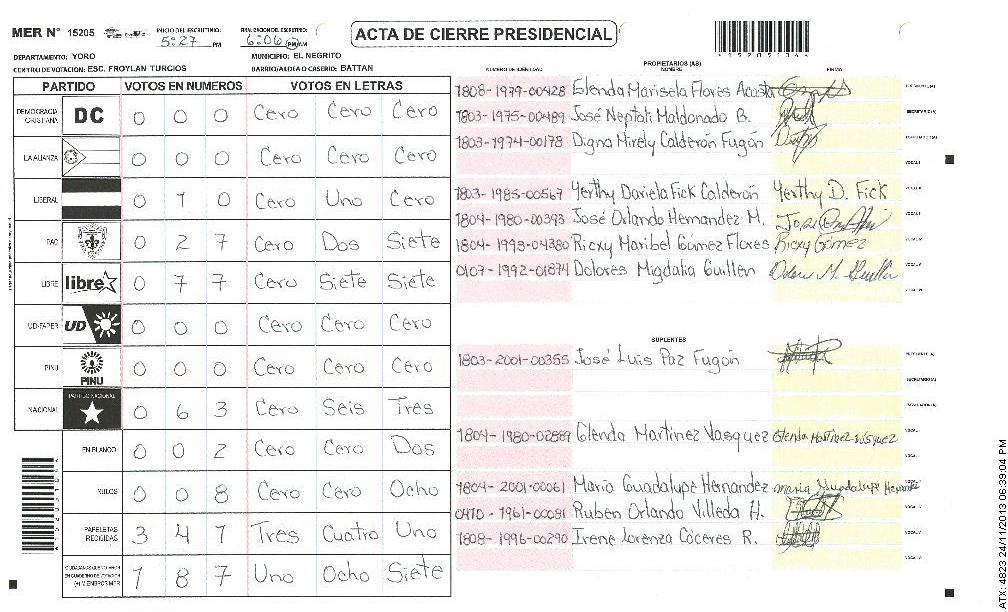 MER N° 15205 INICIO DEL ESCRUTINIO: 5:27 PM FINALIZACION DEL ESCRUTINIO: 6:06 PM AM
ACTA DE CIERRE PRESIDENCIAL
DEPARTAMENTO: YORO MUNICIPIO: EL NEGRITO
CENTRO DE VOTACION: ESC. FROYLAN TURCIOS BARRIO/ALDEA O CASERIO: BATTAN
PARTIDO VOTOS EN NUMEROS VOTOS EN LETRAS
DEMOCRACIA CRISTIANA DC 0 0 0 Cero Cero Cero
LA ALIANZA 0 0 0 Cero Cero Cero
LIBERAL 0 1 0 Cero Uno Cero
PAC 0 2 7 Cero Dos Siete
LIBRE libre 0 7 7 Cero Siete Siete
UD-FAPER UD 0 0 0 Cero Cero Cero
PINU PINU 0 0 0 Cero Cero Cero
NACIONAL PARTIDO NACIONAL 0 6 3 Cero Seis Tres
EN BLANCO 0 0 2 Cero Cero Dos
NULOS 0 0 8 Cero Cero Ocho
PAPELETAS RECIBIDAS 3 4 1 Tres Cuatro Uno
CIUDADANOS QUE VOTARON EN CUADERNO DE VOTACION (+) MIEMBROS MER 1 8 7 Uno Ocho Siete
PROPIETARIOS (AS)
NUMERO DE IDENTIDAD NOMBRE FIRMA
1808-1979-00428 Glenda Marisela Flores Acosta PRESIDENTE (A)
1803-1975-00489 José Neptoli Maldonado B. SECRETARIO (A)
1803-1974-00178 Digna Mirely Calderón Fugón ESCRUTADOR (A)
VOCAL I
1803-1985-00567 Yerthy Dariela Fick Calderón Yerthy D. Fick
1804-1980-00393 José Orlando Hernandez M.
1804-1993-04380 Ricxy Maribel Gómez Flores Ricxy Gómez
0107-1992-01874 Dolores Migdalia Guillen
SUPLENTES
1803-2001-00355 José Luis Paz Fugón PRESIDENTE (A)
SECRETARIO (A)
ESCRUTADOR (A)
1804-1980-02889 Glenda Martinez Vasquez Glenda Martinez Vasquez
1804-2001-00061 María Guadalupe Hernandez maria Guadalupe Hernandez
0410-1961-00091 Ruben Orlando Villeda H.
1808-1996-00290 Irene Lorenza Cáceres R.
ATX: 4823 24/11/2013 06:39:04 PM